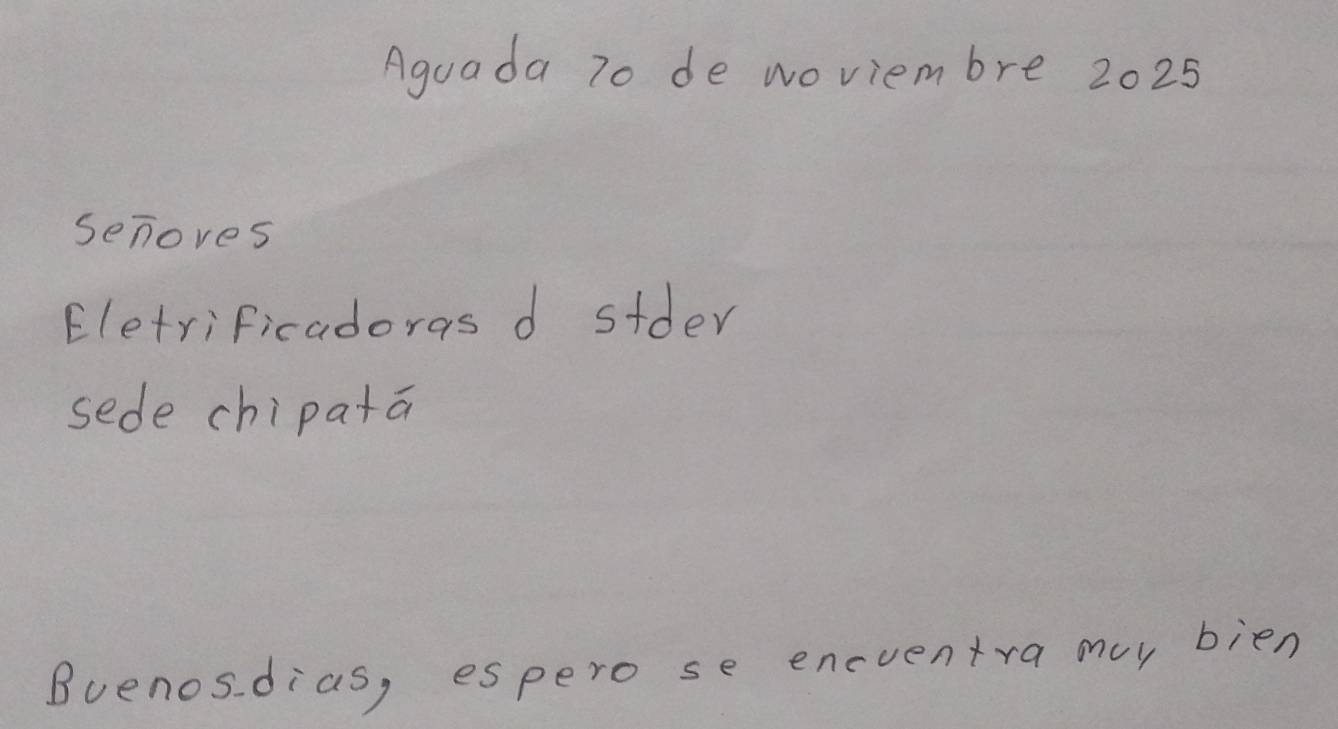 Aguada 10 de noviembre 2025
Señores
Eletrificadoras d stder
sede chipatá
Buenos-dias, espero se encuentra muy bien